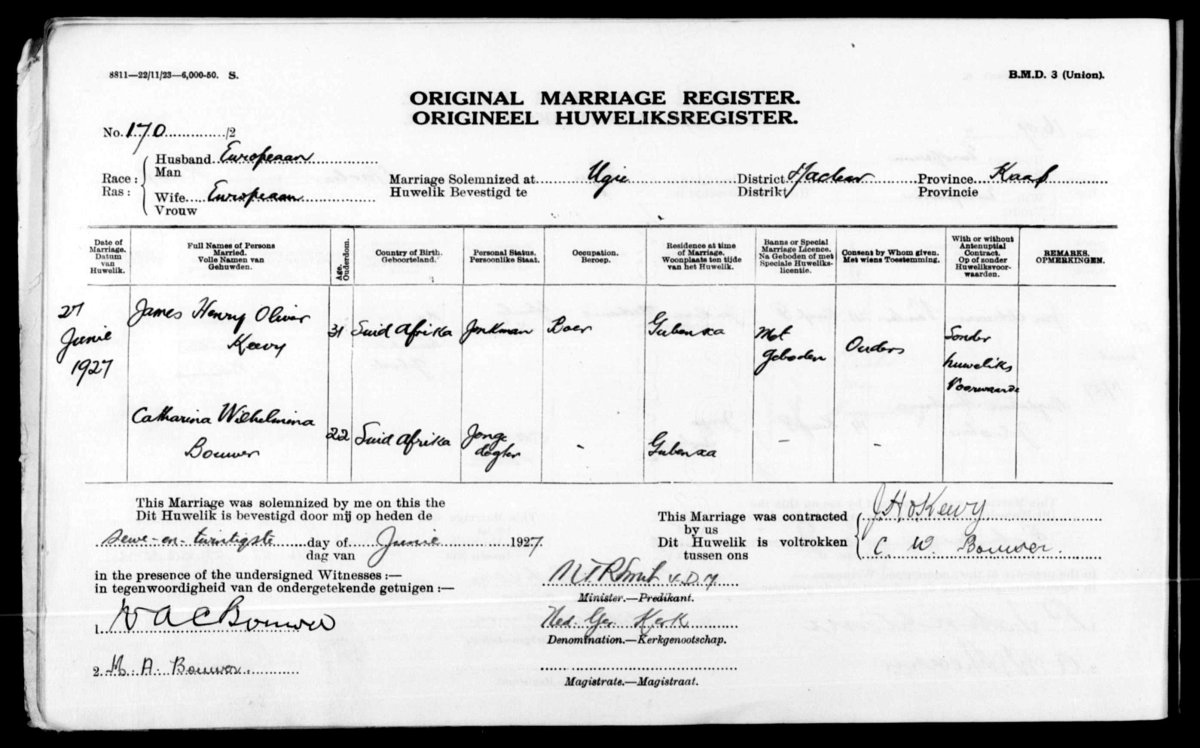 8811—22/11/23—6,000-50. S.
B.M.D. 3 (Union).
ORIGINAL MARRIAGE REGISTER.
ORIGINEEL HUWELIKSREGISTER.
No. 170 /2
Race: Ras:
Husband Europeaan
Man
Wife Europeaan
Vrouw
Marriage Solemnized at Ugie
Huwelik Bevestigd te
District Maclear
Distrikt
Province Kaap
Provincie
Date of Marriage. Datum van Huwelik.
Full Names of Persons Married. Volle Namen van Gehuwden.
Age. Ouderdom.
Country of Birth. Geboorteland.
Personal Status. Persoonlike Staat.
Occupation. Beroep.
Residence at time of Marriage. Woonplaats ten tijde van het Huwelik.
Banns or Special Marriage Licence. Na Geboden of met Speciale Huwelikslicentie.
Consent by Whom given. Met wiens Toestemming.
With or without Antenuptial Contract. Op of zonder Huweliksvoorwaarden.
REMARKS. OPMERKINGEN.
27 Junie 1927
James Henry Oliver Keevy
31
Suid Afrika
Jonkman
Boer
Gubenxa
Met Geboden
Ouders
Sonder huweliks Voorwaarde
Catharina Wilhelmina Bouwer
22
Suid Afrika
Jonge dogter
-
Gubenxa
—
—
This Marriage was solemnized by me on this the
Dit Huwelik is bevestigd door mij op heden de
sewe-en-twintigste day of Junie 1927
dag van
in the presence of the undersigned Witnesses:—
in tegenwoordigheid van de ondergetekende getuigen:—
1.
2. M. A. Bouwer.
This Marriage was contracted by us
Dit Huwelik is voltrokken tussen ons
J. H O Keevy
C. W. Bouwer.
Minister.—Predikant.
Ned. Ger. Kerk
Denomination.—Kerkgenootschap.
Magistrate.—Magistraat.